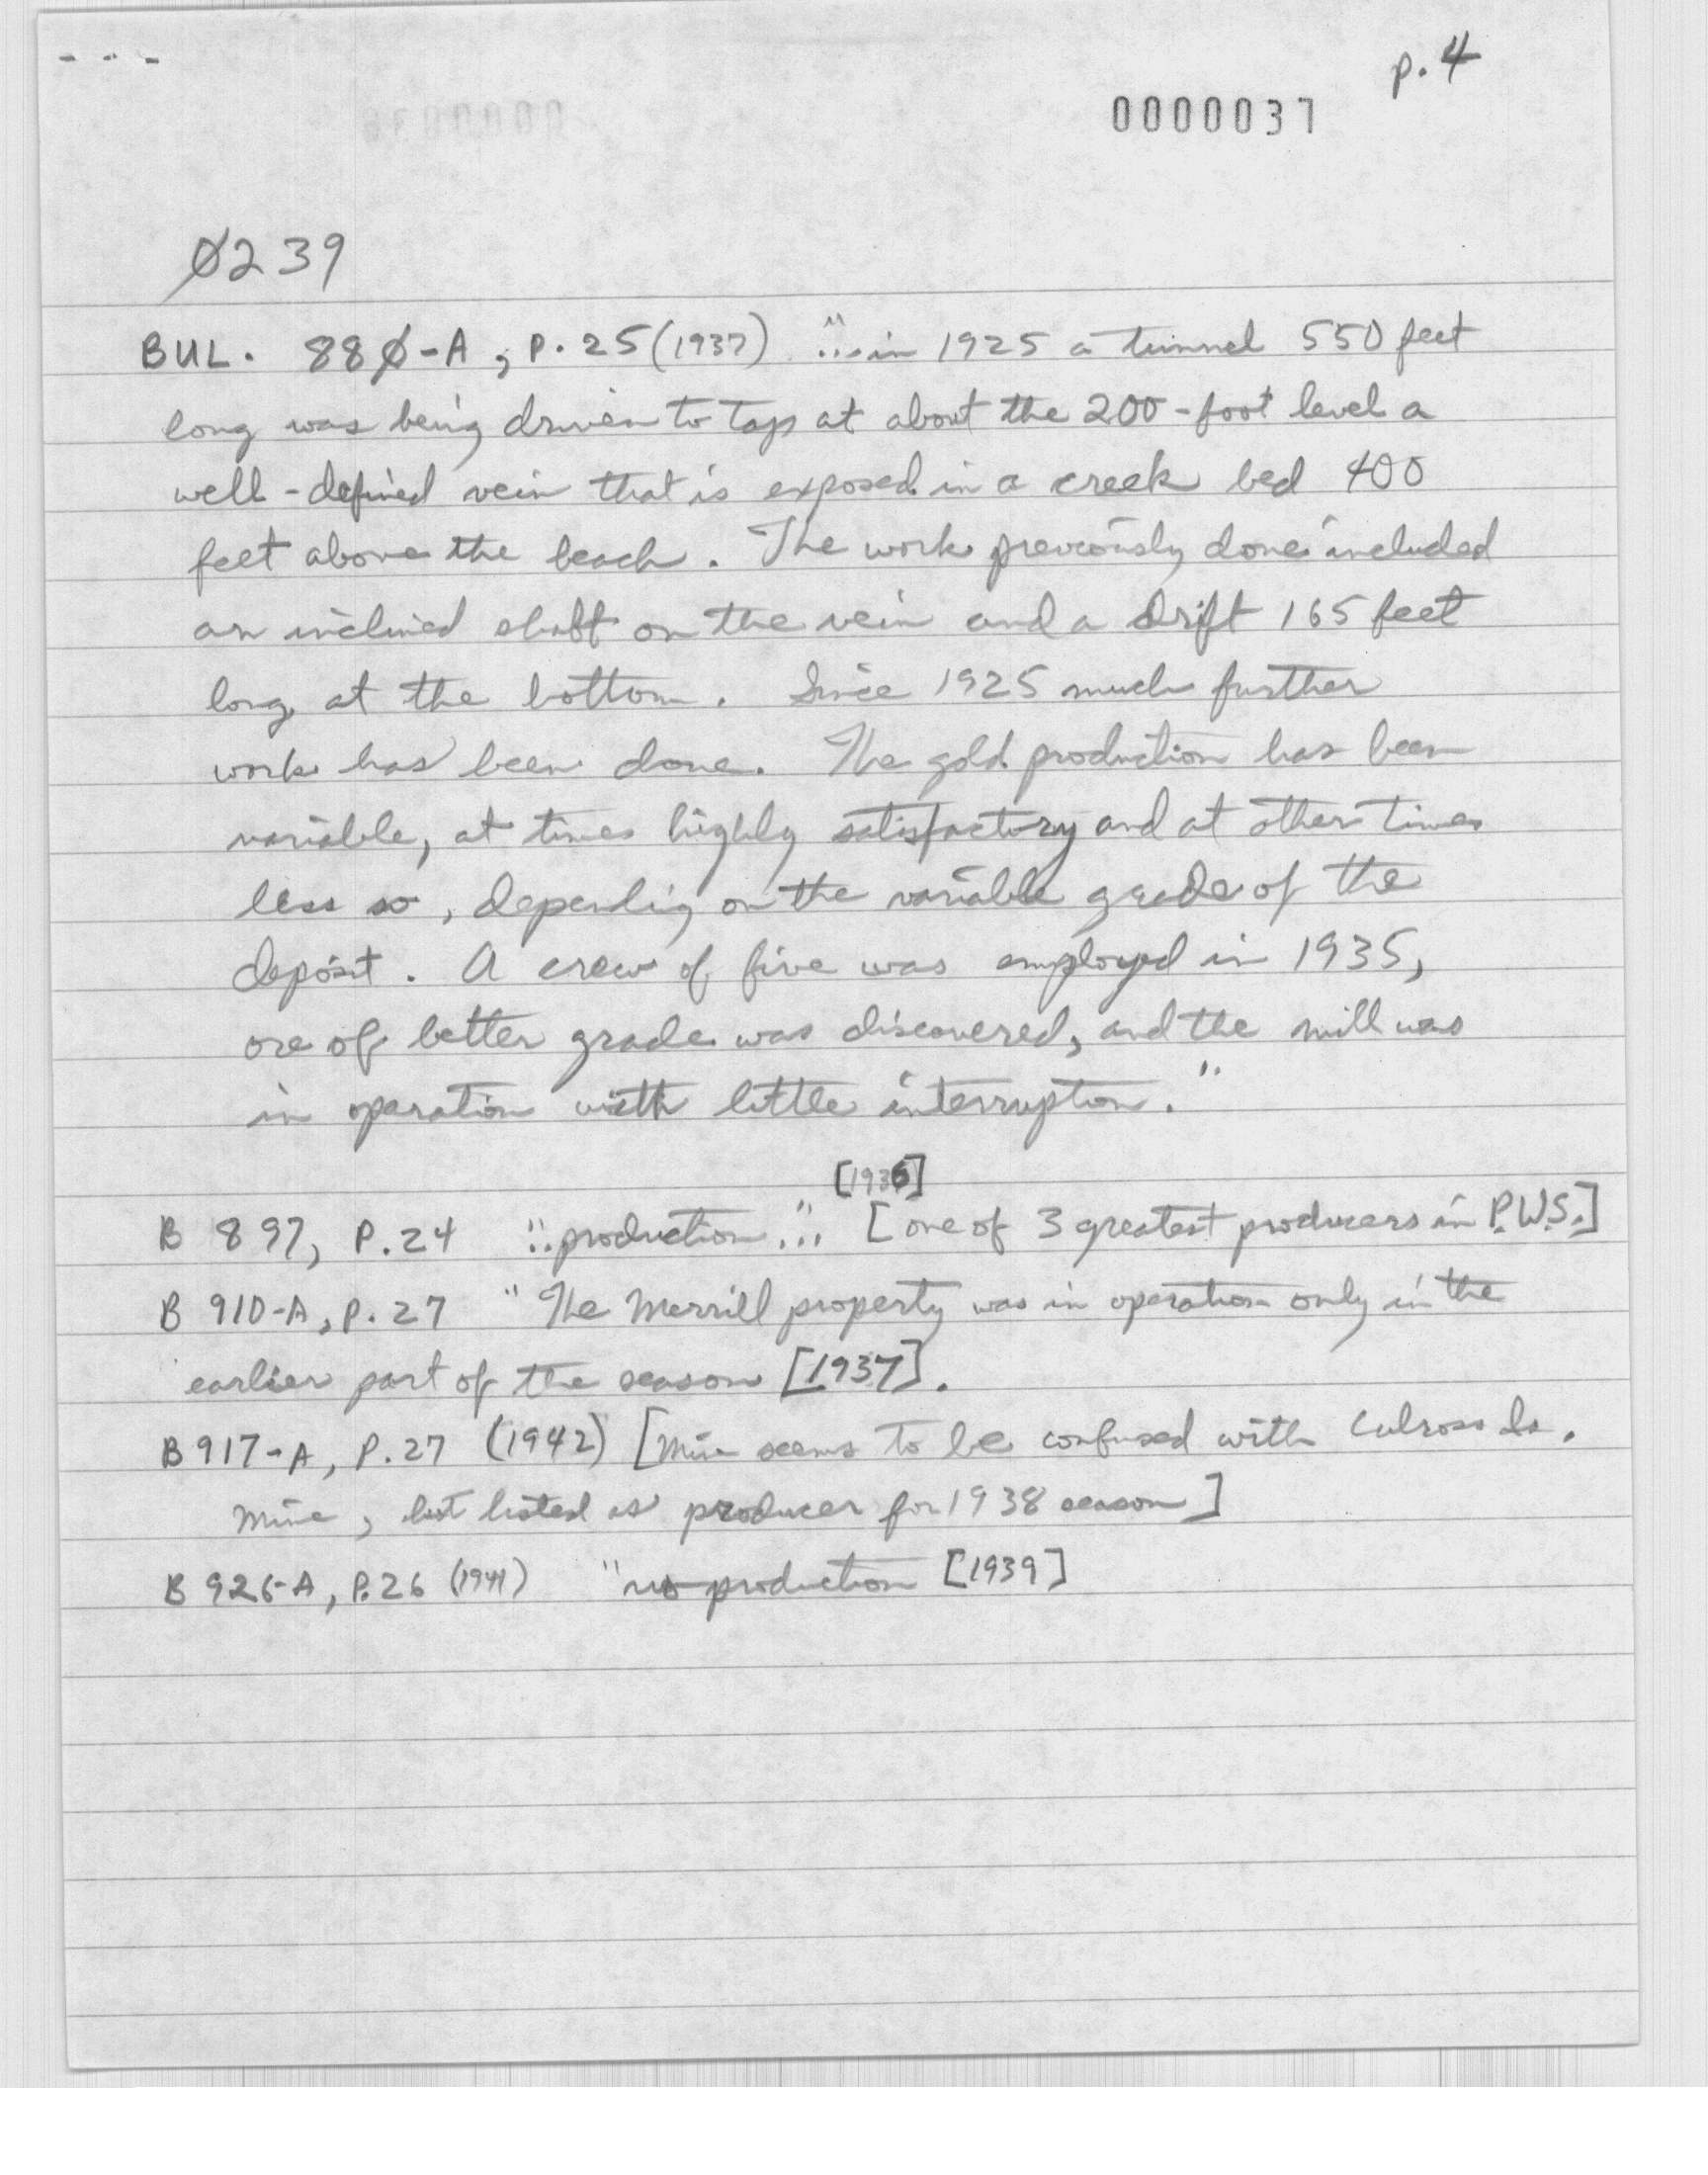 p. 4
0000037
Ø239
BUL. 88Ø-A, P. 25 (1937) "...in 1925 a tunnel 550 feet
long was being driven to tap at about the 200-foot level a
well-defined vein that is exposed in a creek bed 400
feet above the beach. The work previously done included
an inclined shaft on the vein and a drift 165 feet
long at the bottom. Since 1925 much further
work has been done. The gold production has been
variable, at times highly satisfactory and at other times
less so, depending on the variable grade of the
deposit. A crew of five was employed in 1935,
ore of better grade was discovered, and the mill was
in operation with little interruption."
[1936]
B 897, P. 24 "...production..." [one of 3 greatest producers in P.W.S.]
B 910-A, P. 27 "The Merrill property was in operation only in the
earlier part of the season [1937].
B 917-A, P. 27 (1942) [Mine seems to be confused with Culross Is.
Mine, but listed as producer for 1938 season]
B 926-A, P. 26 (1941) "no production [1939]